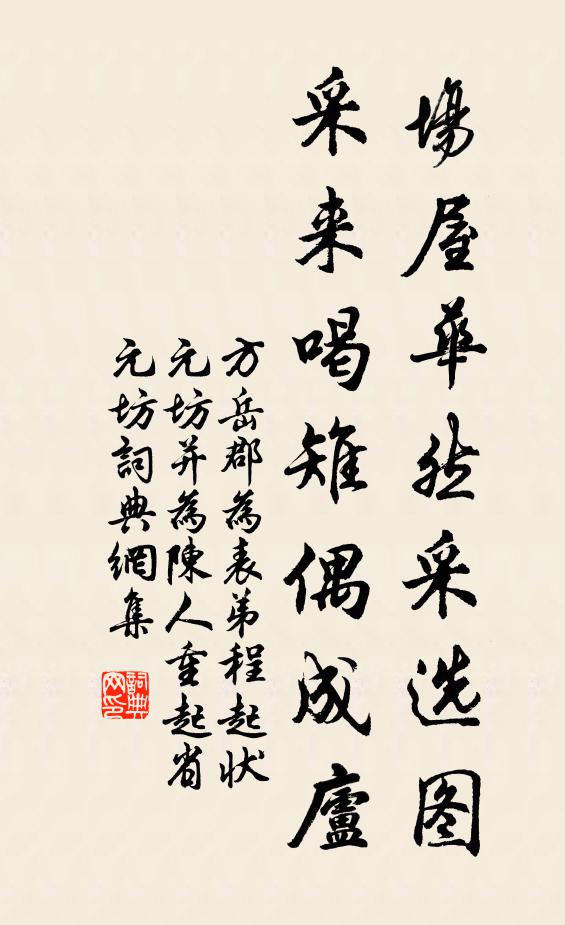 場屋華然采选图
采来喝雉偶成廬
方岳郡為表弟程起状
元坊并為陳人重起省
元坊詞典網集
詞典网印